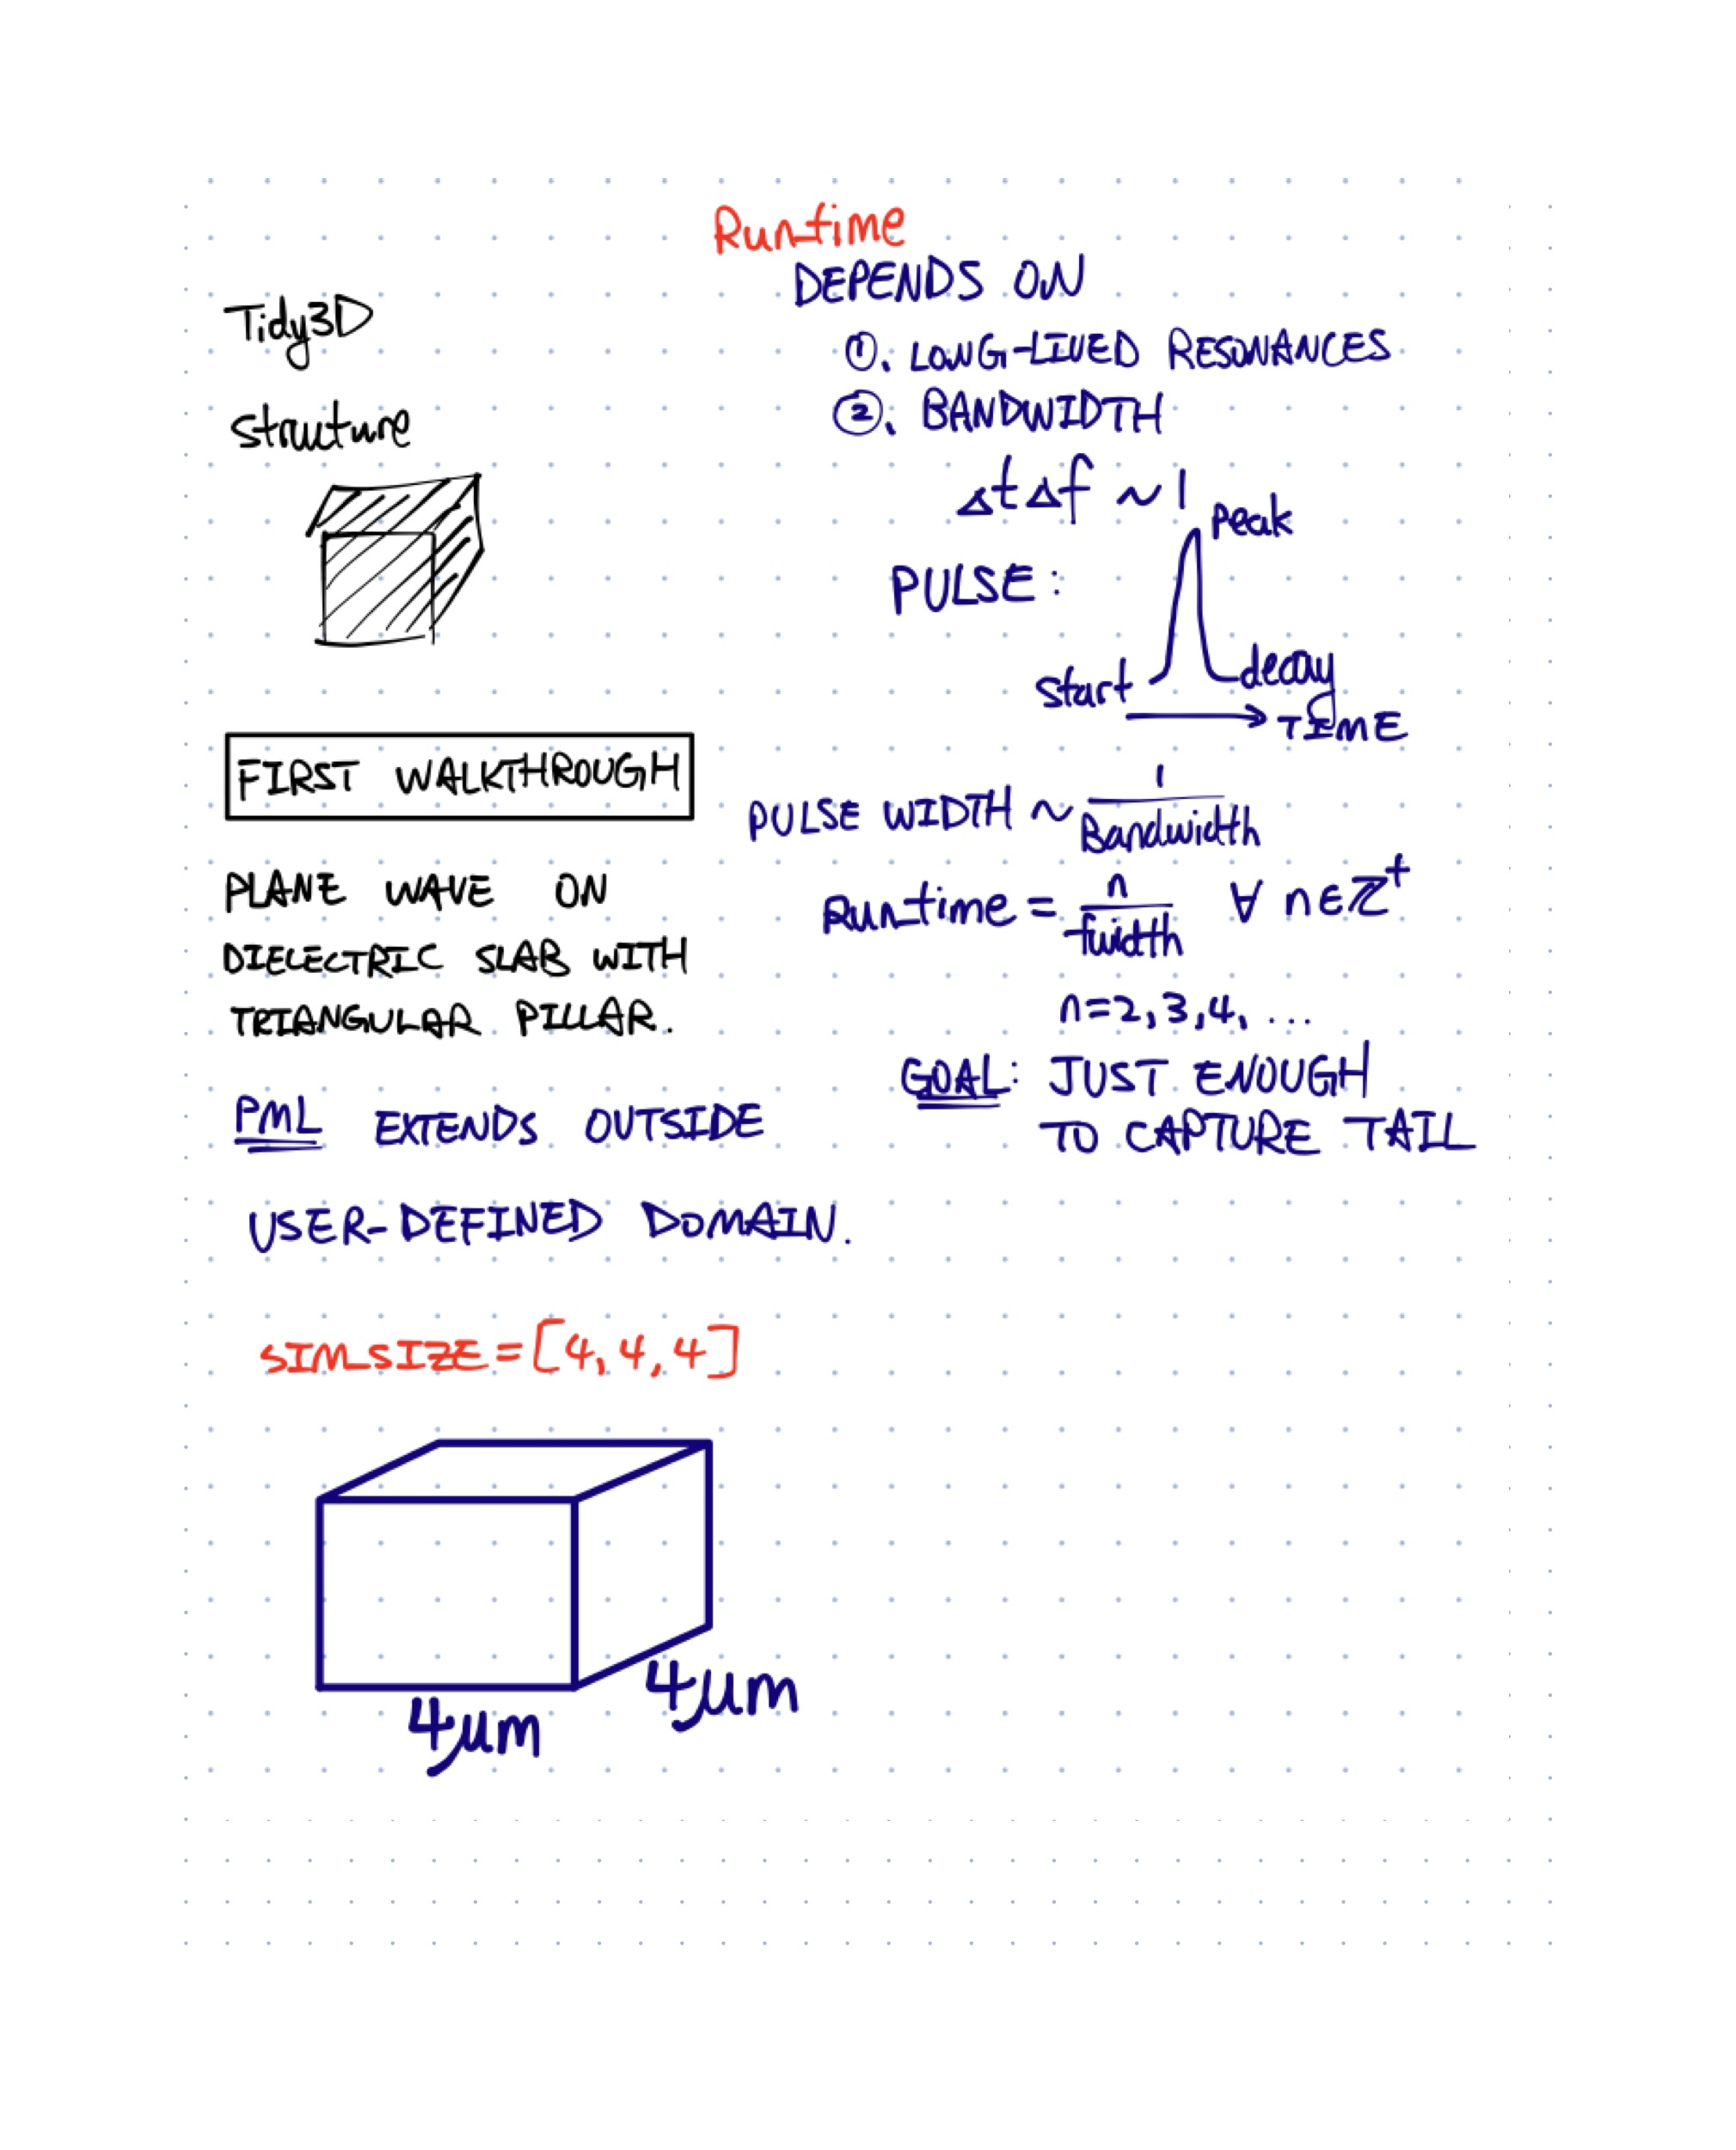 Tidy3D
Structure
FIRST WALKTHROUGH
PLANE WAVE ON
DIELECTRIC SLAB WITH
TRIANGULAR PILLAR.
PML EXTENDS OUTSIDE
USER-DEFINED DOMAIN.
SIM_SIZE = [4, 4, 4]
4μm
4μm
Runtime
DEPENDS ON
①. LONG-LIVED RESONANCES
②. BANDWIDTH
ΔtΔf ~ 1
Peak
PULSE:
Start
decay
TIME
PULSE WIDTH ~ 1/Bandwidth
Runtime = n/fwidth ∀ n∈ℤ⁺
n=2,3,4, ...
GOAL: JUST ENOUGH
TO CAPTURE TAIL